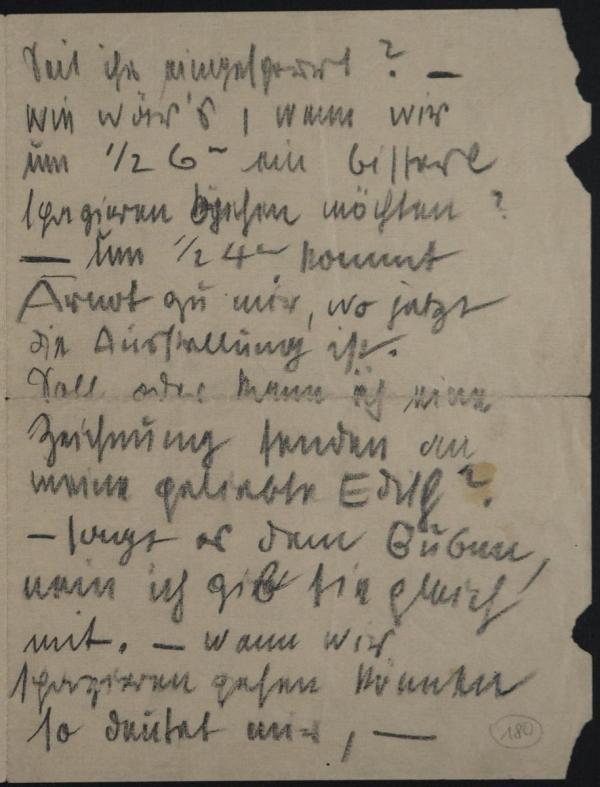 Seit ihr eingesperrt? —
wie wär's, wenn wir
um 1/2 6 ein bisserl
spazieren gehen möchten?
— um 1/2 4 kommt
Arnot zu mir, wo jetzt
die Ausstellung ist.
Soll oder kann ich eine
Zeichnung senden an
meine geliebte Edith?
— sagt es dem Buben,
nein ich gib sie gleich
mit. — wann wir
spazieren gehen können
so deutet mir, —
180